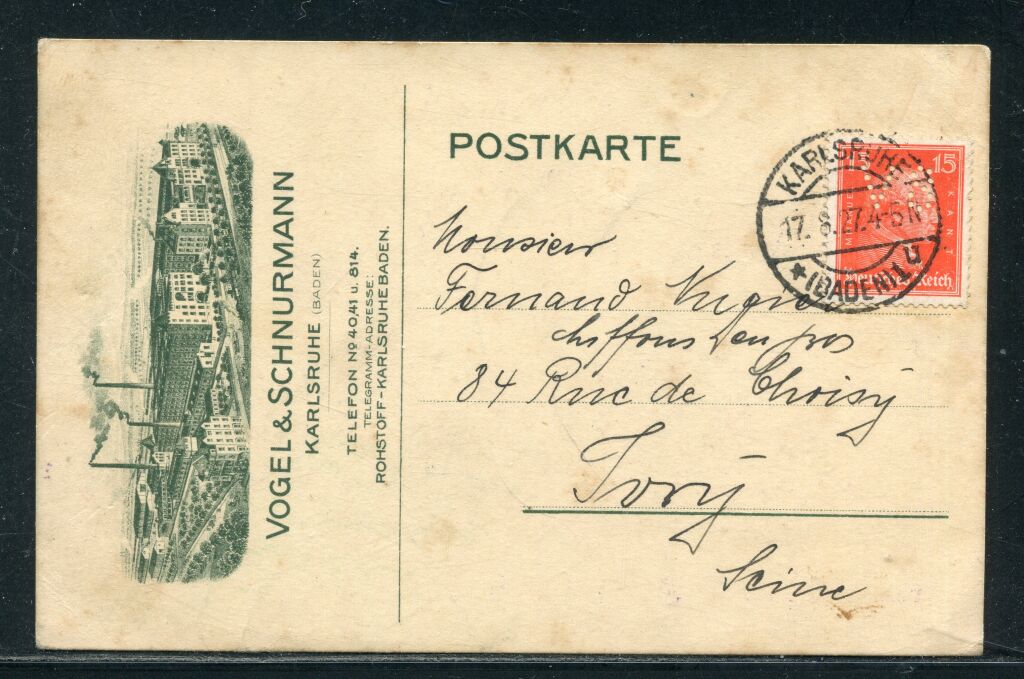 VOGEL & SCHNURMANN
KARLSRUHE (BADEN)
TELEFON Nº 40,41 u. 814.
TELEGRAMM-ADRESSE:
ROHSTOFF-KARLSRUHEBADEN.
POSTKARTE
KARLSRUHE
17. 8.27. 4-5 N
* (BADEN) 1 u
15 15
KANT
Reich
Monsieur
Fernand
chiffons en gros
84 Rue de Choisy
Ivry
Seine